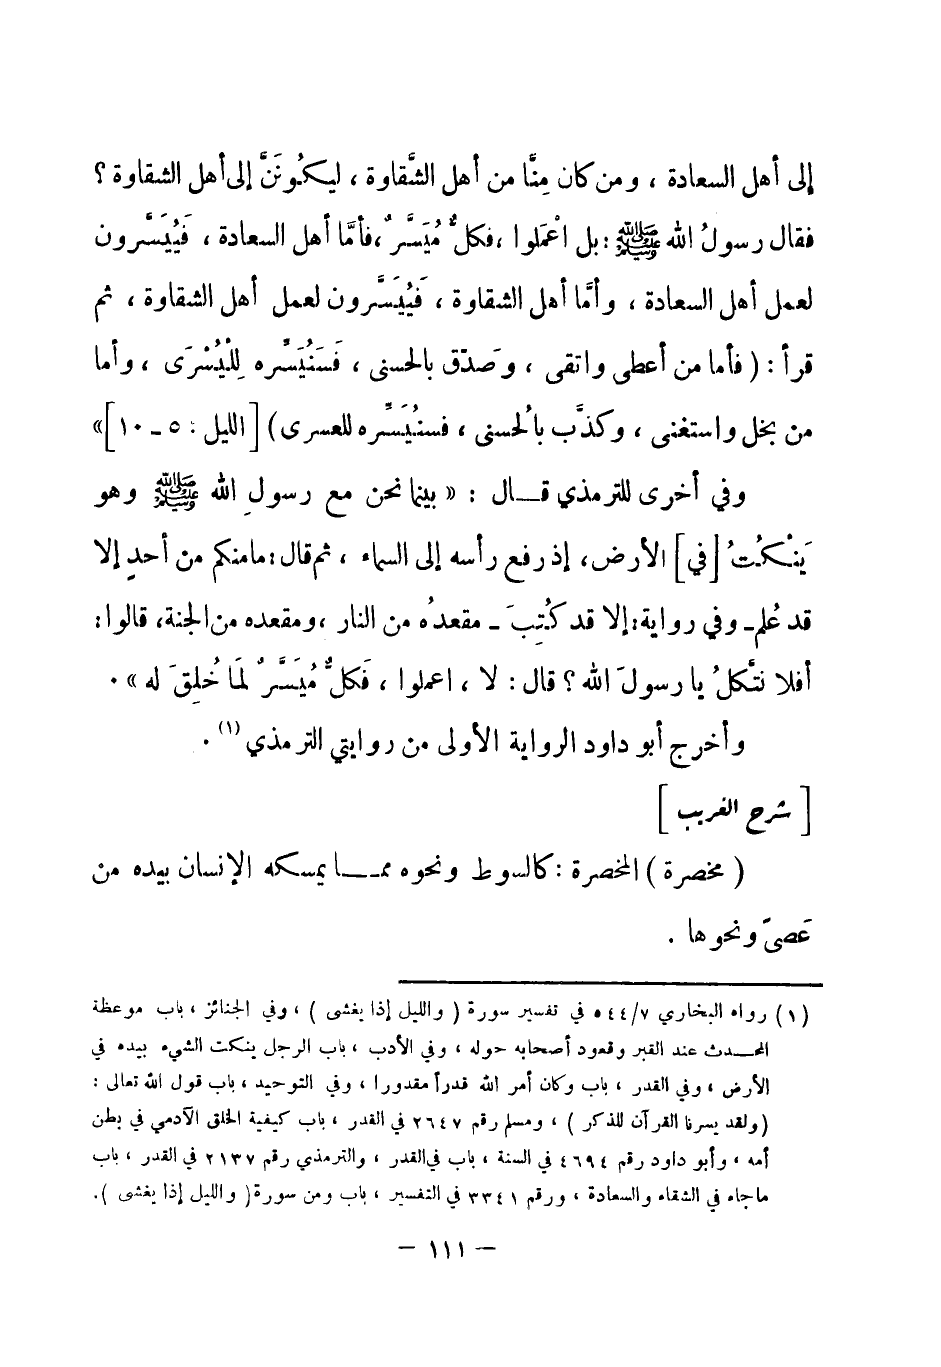 إلى أهل السعادة ، ومن كان مِنَّا من أهل الشَّقاوة ، ليكُونَنَّ إلى أهل الشقاوة ؟
فقال رسولُ الله ﷺ : بل اعْمَلوا ، فكلٌّ مُيَسَّرٌ ، فأمَّا أهل السعادة ، فَيُيَسَّرون
لعمل أهل السعادة ، وأمَّا أهل الشقاوة ، فَيُيَسَّرون لعمل أهل الشقاوة ، ثم
قرأ : ( فأما من أعطى واتقى ، وصَدّق بالحسنى ، فَسَنُيَسِّره لِلْيُسْرَى ، وأما
من بخل واستغنى ، وكذَّب بالُحسنى ، فسنُيَسِّره للعسرى) [ الليل : ٥ ـ ١٠ ] »
وفي أخرى للترمذي قـال : « بينما نحن مع رسولِ الله ﷺ وهو
يَنْكُتُ [في] الأرض، إذ رفع رأسه إلى السماء ، ثم قال : مامنكم من أحدٍ إلا
قد عُلم ـ وفي رواية : إلا قد كُتِبَ ـ مقعدُه من النار ، ومقعده من الجنة، قالوا :
أفلا نتَّكلُ يا رسولَ الله ؟ قال : لا ، اعملوا ، فَكلٌّ مُيَسَّرٌ لمَا خُلِقَ له » .
وأخرج أبو داود الرواية الأولى من روايتي الترمذي (١) .
[ شرح الغريب ]
( مخصرة ) المخصرة : كالسوط ونحوه ممـــا يمسكه الإنسان بيده من
عَصىً ونحوها .
(١) رواه البخاري ٥٤٤/٧ في تفسير سورة ( والليل إذا يغشى ) ، وفي الجنائز ، باب موعظة
المحـدث عند القبر وقعود أصحابه حوله ، وفي الأدب ، باب الرجل ينكت الشيء بيده في
الأرض ، وفي القدر ، باب وكان أمر الله قدراً مقدورا ، وفي التوحيد ، باب قول الله تعالى :
(ولقد يسرنا القرآن للذكر ) ، ومسلم رقم ٢٦٤٧ في القدر ، باب كيفية الخلق الآدمي في بطن
أمه ، وأبو داود رقم ٤٦٩٤ في السنة ، باب في القدر ، والترمذي رقم ٢١٣٧ في القدر ، باب
ماجاء في الشقاء والسعادة ، ورقم ٣٣٤١ في التفسير ، باب ومن سورة ( والليل إذا يغشى ).
ـ ١١١ ـ